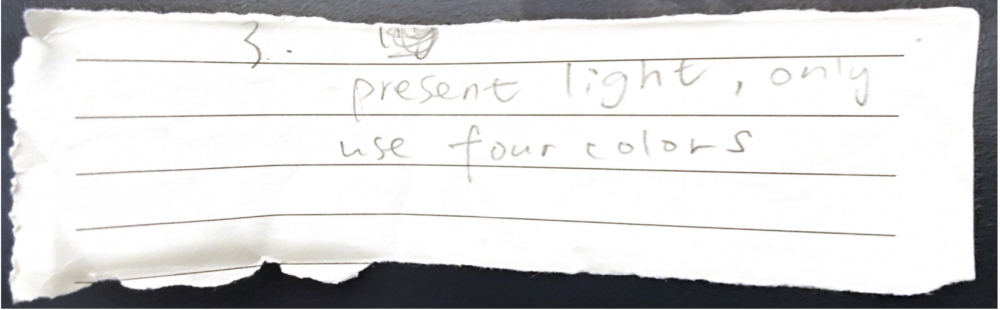 3.
present light, only
use four colors